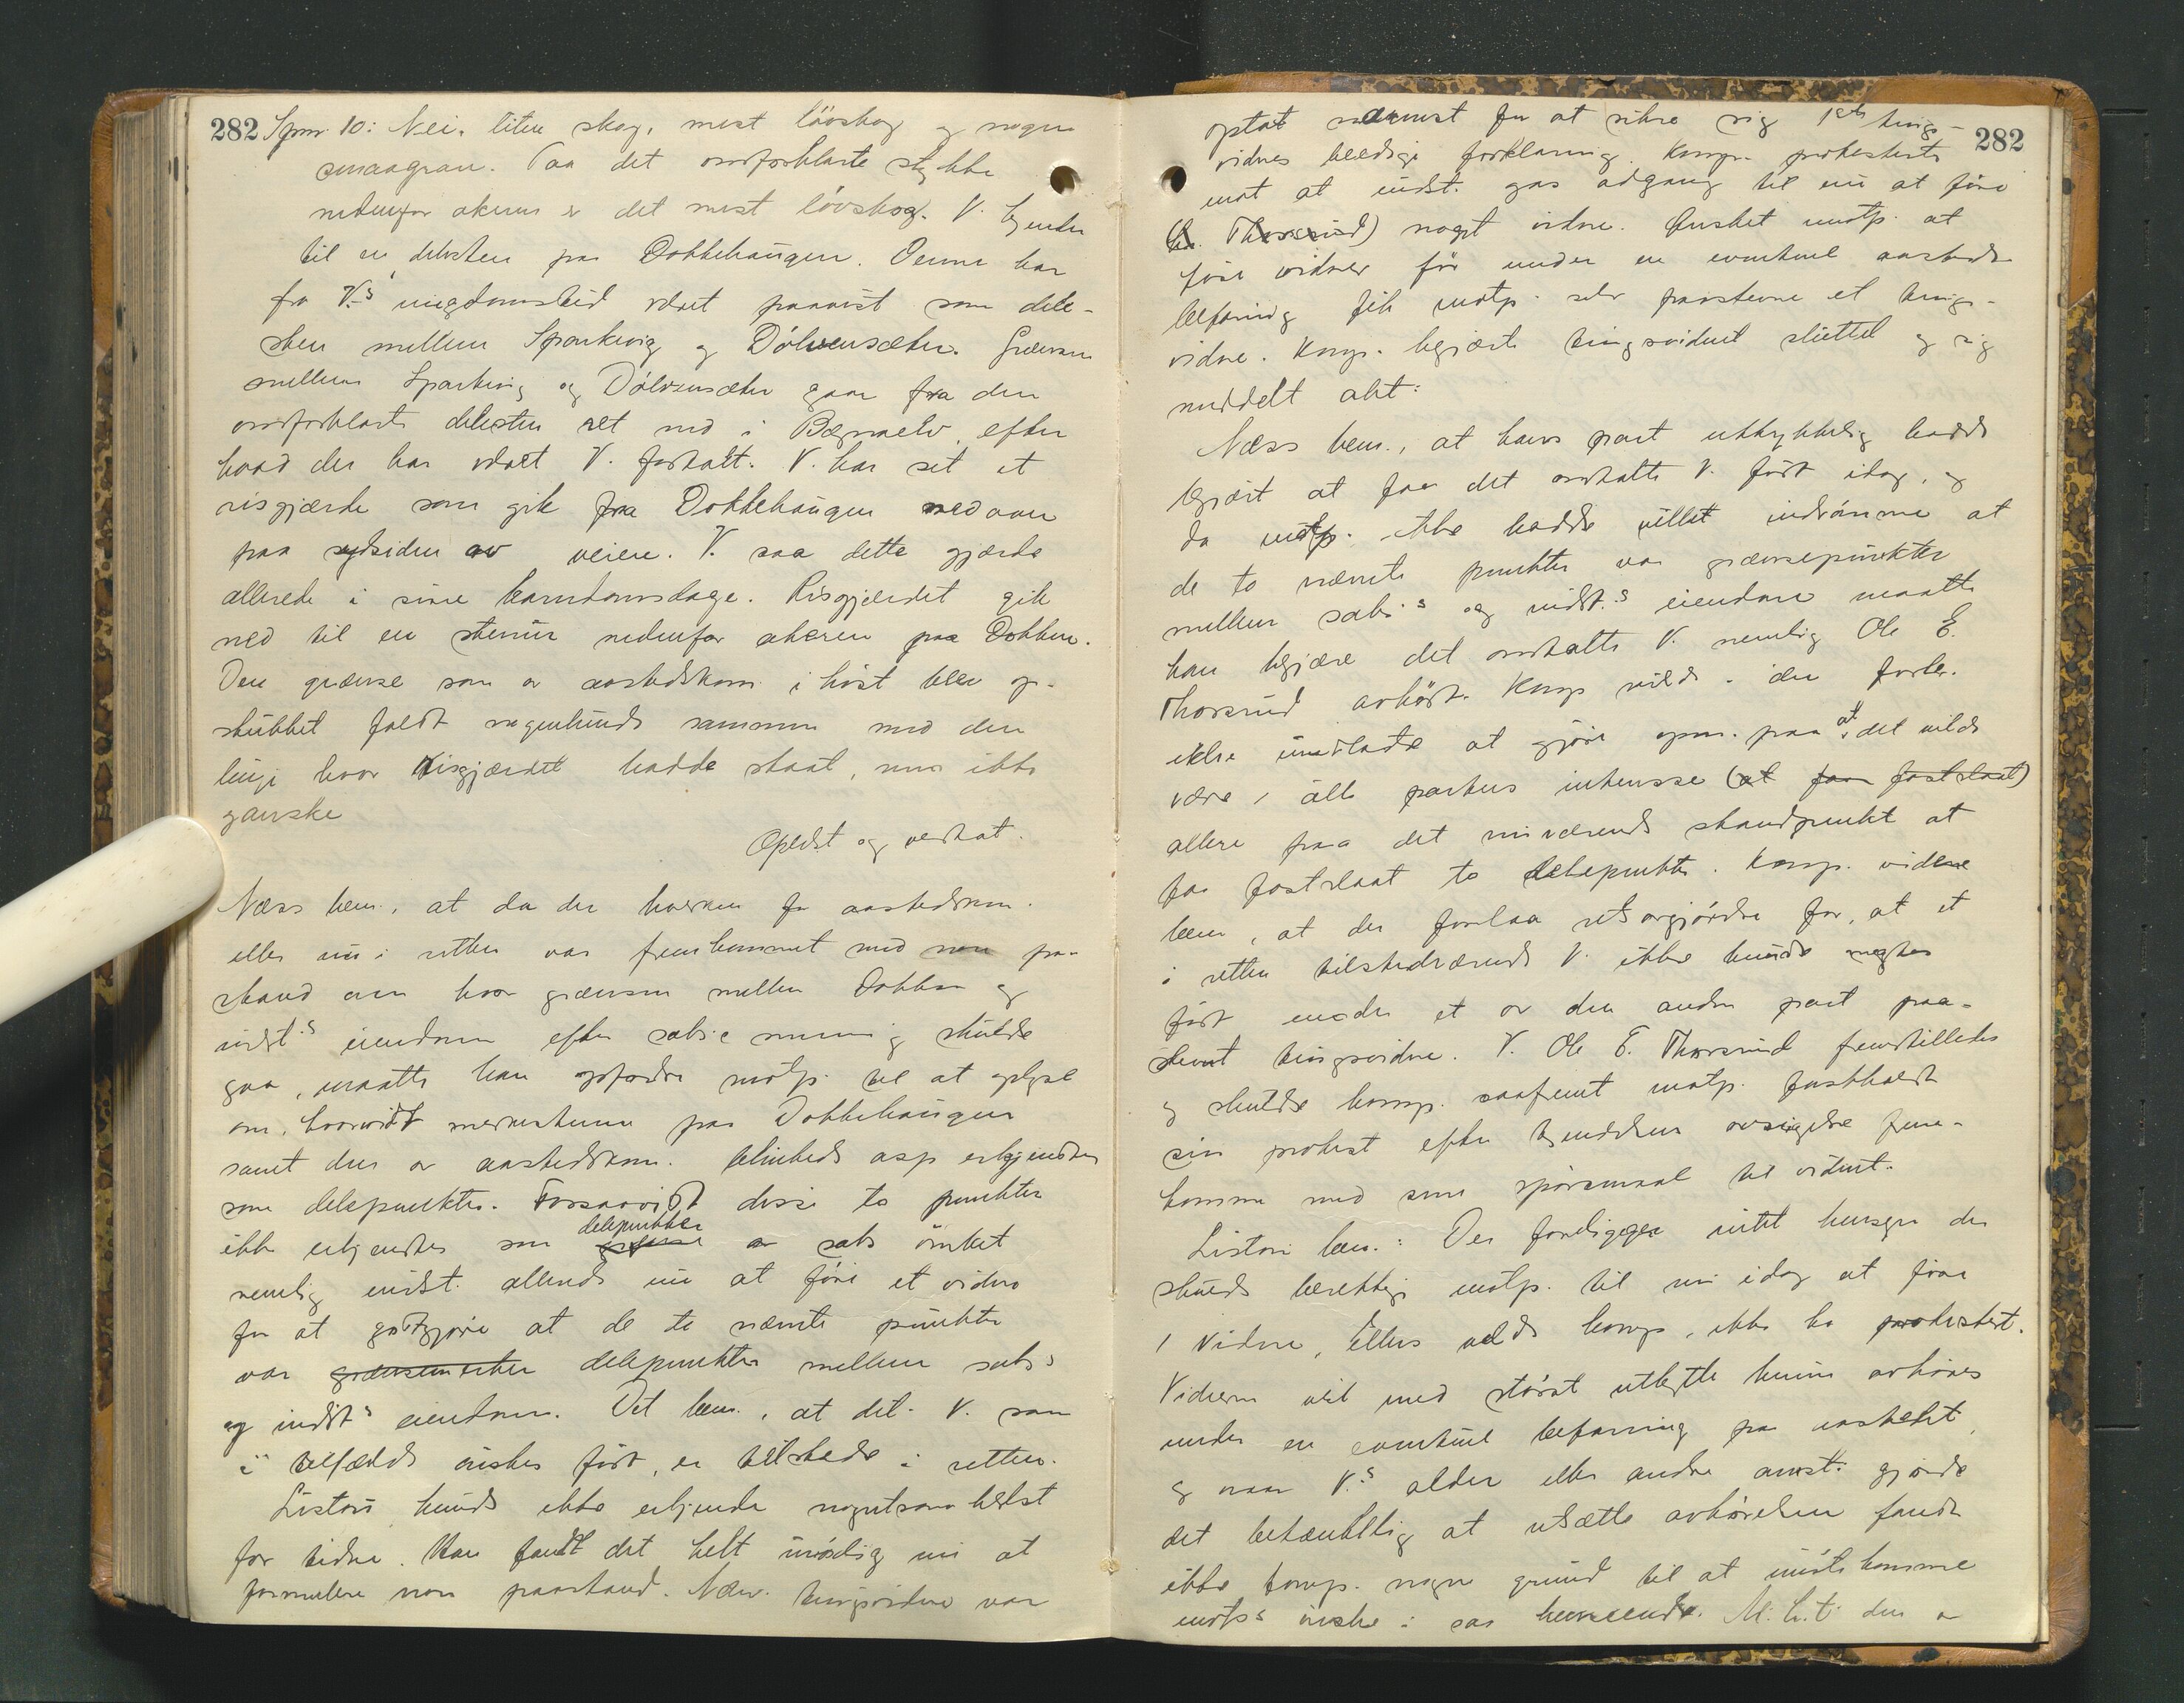 282 Spm. 10: Nei. liten skog, mest lövskog og nogen
smaagran. Paa det omforklarte stykke
nedenfor akeren er det mest lövskog. V. kjender
til en delesten paa Dokkehaugen. Denne har
fra V.s ungdomstid vært paavist som dele-
sten mellem Sparkevig og Dölvensæter. Grænsen
mellem Sparkevig og Dölvensæter gaar fra den
omforklarte delesten ret ned i Bægnaelv, efter
hvad der har vært V. fortalt. V. har set et
risgjærde som gik fra Dokkehaugen nedover
paa sydsiden av veien. V. saa dette gjærde
allerede i sine barndomsdage. Risgjærdet gik
ned til en stenur nedenfor akeren paa Dokken.
Den grænse som av aastedskom. i höst blev op-
stukket faldt nogenlunde sammen med den
linje hvor risgjærdet hadde staat, men ikke
ganske
Oplæst og vedtat.
Næss bem., at da der hverken for aastedskom.
eller nu i retten var fremkommet med noen paa-
stand om hvor grænsen mellem Dokken og
indst.s eiendom efter saks. mening skulde
gaa, maatte han opfordre motp. til at oplyse
om, hvorvidt merkestenen paa Dokkehaugen
samt den av aastedskom. asp erkjendtes
som delepunkter. Forsaavidt disse to punkter
delepunkter
ikke erkjendtes som av saks. önsket
nemlig indst. allerede nu at före et vidne
for at godtgjöre at de to nævnte punkter
var grænsemerker delepunkter mellem saks.s
og indst.s eiendom. Det bem., at det V. som
i tilfælde önskes fört, er tilstede i retten.
Liston kunde ikke erkjende nogetsomhelst
for tiden. Han fandt det helt unödig nu at
formulere noen paastand. Næv. tingsvidne var
282
optat nærmest for at sikre sig 1ste tings-
vidnes beedige forklaring. Komp. protesterte
mot at indst. gas adgang til nu at före
(Th. Thorsrud) noget vidne. Önsket motp. at
före vidner för under en eventuel aasteds-
befaring fik motp. selv paastevne et tings-
vidne. Komp. begjærte tingsvidnet sluttet og sig
meddelt akt:
Næss bem., at hans part uttrykkelig hadde
begjært at faa det omtalte V. fört idag, og
da motp. ikke hadde villet indrömme at
de to nævnte punkter var grænsepunkter
mellem saks.s og indst.s eiendom maatte
han begjære det omtalte V. nemlig Ole E.
Thorsrud avhört. Komp. vilde i den forb.
ikke undlate at gjöre opm. paa at det vilde
være i alle parters interesse (at faa fastslaat)
allere paa det nuværende standpunkt at
faa fastslaat to delepunkter. Komp. videre
bem, at der forelaa retsavgjörelse for, at et
i retten tilstedeværende V. ikke kunde negtes
fört under et av den anden part paa-
stevnt tingsvidne. V. Ole E. Thorsrud fremstilledes
og skulde komp. saafremt motp. fastholdt
sin protest efter kjendelsens avsigelse frem-
komme med sine spörsmaal til vidnet.
Liston bem.: Der foreligger intet hensyn der
skulde berettige motp. til nu idag at före
1 vidne, Ellers vilde komp. ikke ha protestert.
Vidnene vil med störst utbytte kunne avhöres
under en eventuel befaring paa aastedet,
og naar V.s alder eller andre omst. gjorde
det betænkelig at utsætte avhörelsen fandt
ikke komp. nogen grund til at imötekomme
motp.s önske i saa henseende. M.h.t. den av